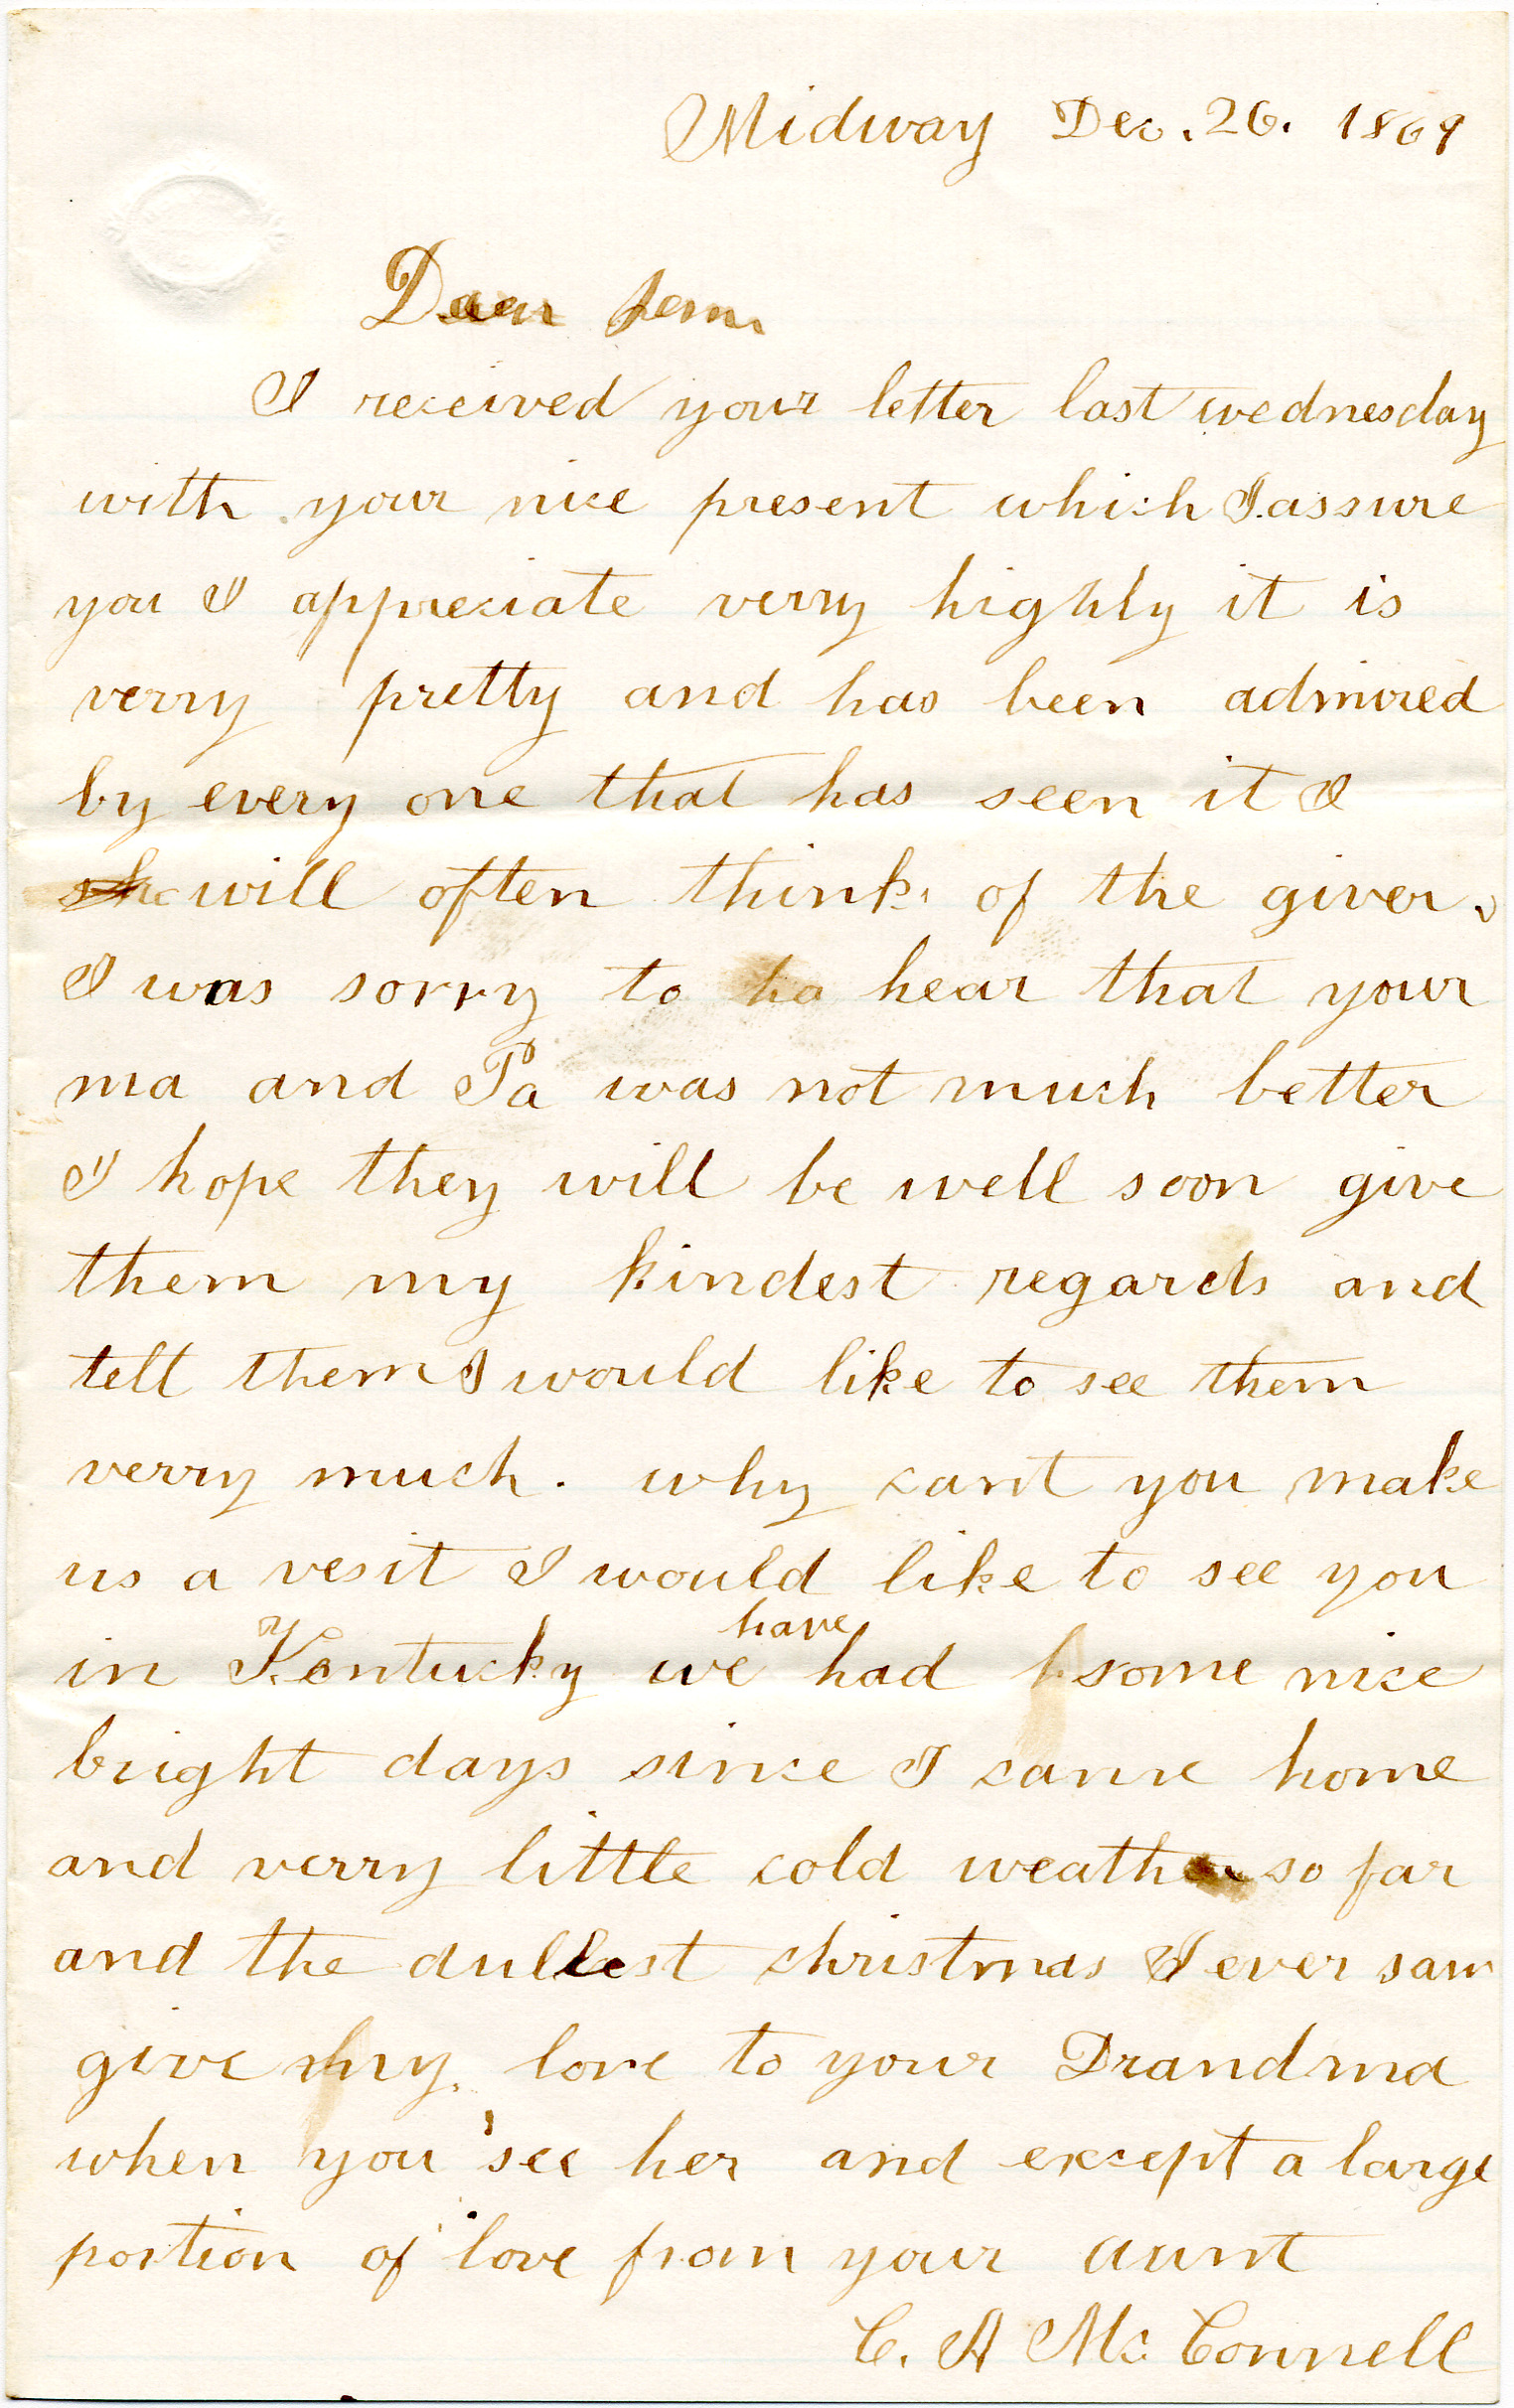 Midway Dec. 26. 1869
Dear Jem
I received your letter last wednesday
with your nice present which I assure
you I appreciate verry highly it is
verry pretty and has been admired
by every one that has seen it I
will often think of the giver.
I was sorry to ha hear that your
ma and Pa was not much better
I hope they will be well soon give
them my kindest regards and
tell them I would like to see them
verry much. why cant you make
us a vesit I would like to see you
in Kentucky we have had some nice
bright days since I came home
and verry little cold weather so far
and the dullest christmas I ever saw
give my love to your Grandma
when you see her and except a large
portion of love from your aunt
C. A Mc Connell